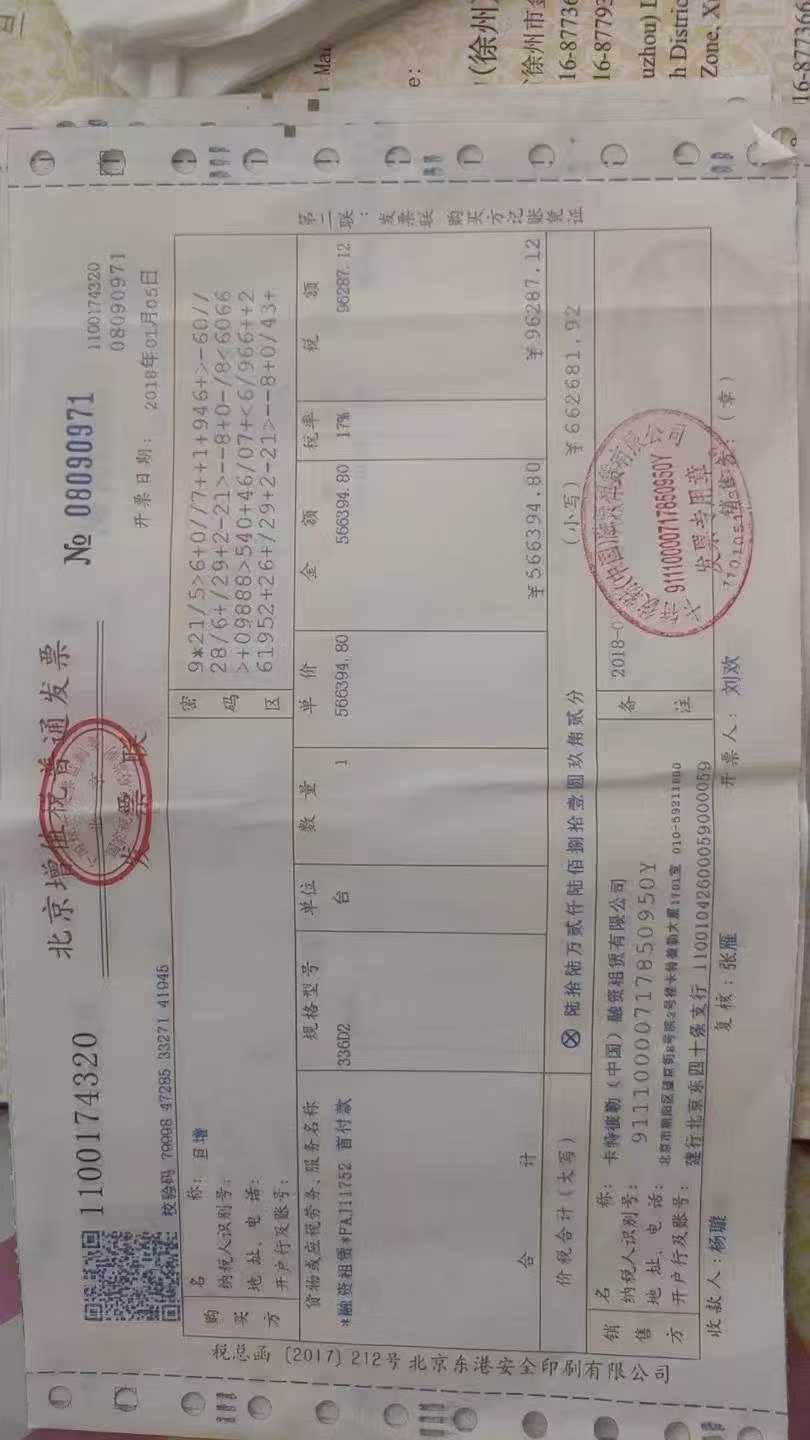 1100174320
北京增值税普通发票
发票联
№ 08090971
1100174320
08090971
校验码 79998 47285 33271 41945
开票日期: 2018年01月05日
购买方
名 称: 旦增
纳税人识别号:
地 址、电 话:
开户行及账号:
密码区
9*21/5>6+0//7++1+946+>-60//
28/6+/29+2-21>--8+0-/8<6066
>+09888>540+46/07+<6/966++2
61952+26+/29+2-21>--8+0/43+
货物或应税劳务、服务名称 规格型号 单位 数量 单价 金额 税率 税额
*融资租赁*PAJ11752 首付款 336D2 台 1 566394.80 566394.80 17% 96287.12
合 计 ¥566394.80 ¥96287.12
价税合计(大写) ⊗陆拾陆万贰仟陆佰捌拾壹圆玖角贰分 (小写) ¥662681.92
销售方
名 称: 卡特彼勒(中国)融资租赁有限公司
纳税人识别号: 91110000717850950Y
地 址、电 话: 北京市朝阳区望京街8号院2号楼卡特彼勒大厦1701室 010-59211800
开户行及账号: 建行北京东四十条支行 11001042600059000059
备注
2018-0
911100007178509​50Y
发票专用章
收款人: 杨璇 复核: 张雁 开票人: 刘欢 销售方: (章)
第二联: 发票联 购买方记账凭证
税总函〔2017〕212号北京东港安全印刷有限公司